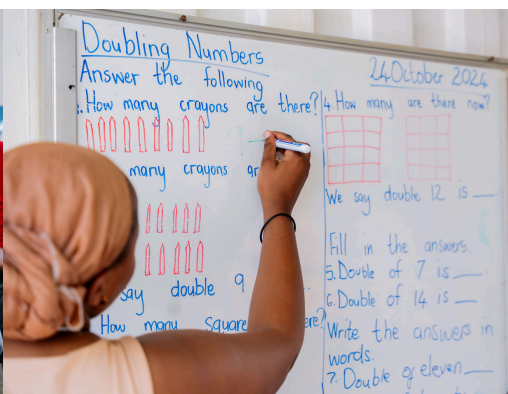 Doubling Numbers
Answer the following
1. How many crayons are there?
9
many crayons
say double 9
How many square
24 October 2024
4. How many are there now?
We say double 12 is ___
Fill in the answers.
5. Double of 7 is ___
6. Double of 14 is ___
Write the answers in
words.
7. Double of eleven ___